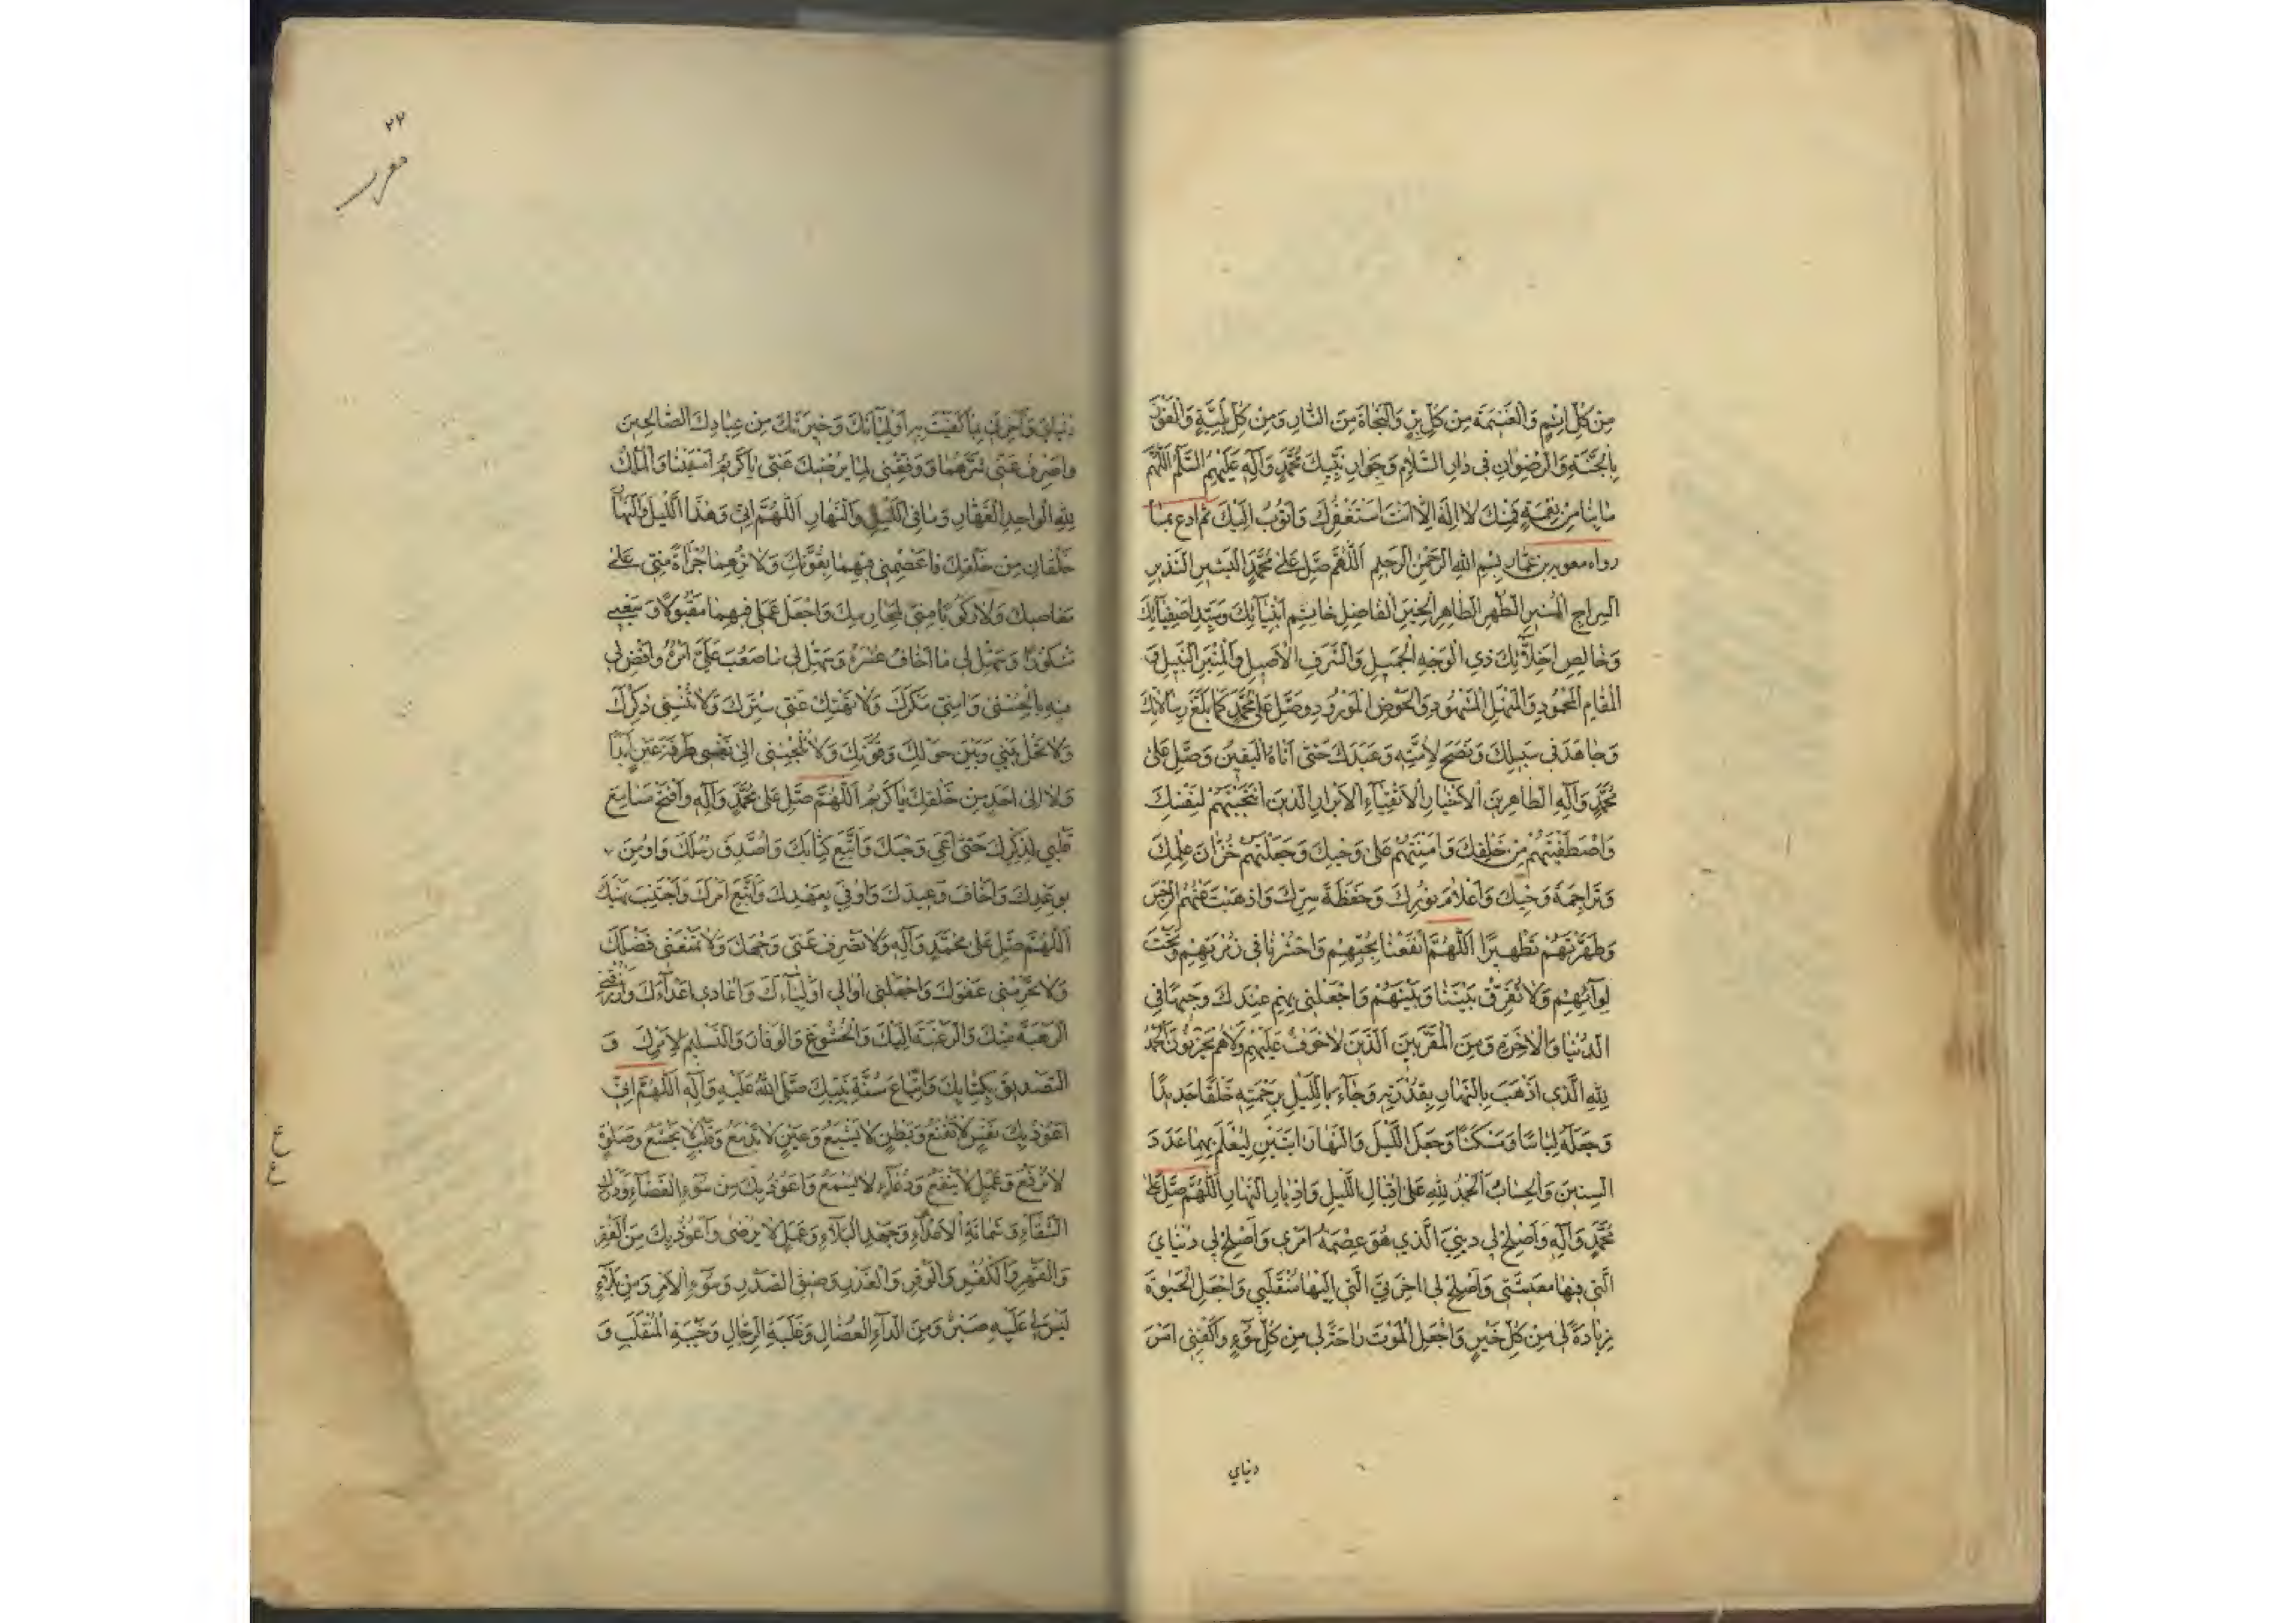 مِنْ كُلِّ اِثْمٍ وَالْغَنيمَةَ مِنْ كُلِّ بِرٍّ وَالنَّجاةَ مِنَ النّارِ وَمِنْ كُلِّ بَلِيَّةٍ وَالْفَوْزَ
بِالْجَنَّةِ وَالرِّضْوانِ في دارِ السَّلامِ وَجِوارِ نَبِيِّكَ مُحَمَّدٍ وَآلِهِ عَلَيْهِمُ السَّلَمُ اَللّهُمَّ
ما بِنا مِنْ نِعْمَةٍ فَمِنْكَ لا اِلهَ اِلّا اَنْتَ اَسْتَغْفِرُكَ وَاَتُوبُ اِلَيْكَ ثم ادع بما
رواه معوية بن عمّار بِسْمِ اللهِ الرَّحْمنِ الرَّحيمِ اَللّهُمَّ صَلِّ عَلى مُحَمَّدٍ الْبَشيرِ النَّذيرِ
السِّراجِ الْمُنيرِ الطُّهْرِ الطّاهِرِ الْخَيِّرِ الْفاضِلِ خاتِمِ اَنْبِيآئِكَ وَسَيِّدِ اَصْفِيآئِكَ
وَخالِصِ اَخِلّآئِكَ ذِي الْوَجْهِ الْجَميلِ وَالشَّرَفِ الْاَصيلِ وَالْمِنْبَرِ النَّبيلِ وَ
الْمَقامِ الْمَحْمُودِ وَالْمَنْهَلِ الْمَشْهُودِ وَالْحَوْضِ الْمَوْرُودِ وَصَلِّ عَلى مُحَمَّدٍ كَما بَلَّغَ رِسالاتِكَ
وَجاهَدَ في سَبيلِكَ وَنَصَحَ لِاُمَّتِهِ وَعَبَدَكَ حَتّى اَتاهُ الْيَقينُ وَصَلِّ عَلى
مُحَمَّدٍ وَآلِهِ الطّاهِرينَ الْاَخْيارِ الْاَتْقِيآءِ الْاَبْرارِ الَّذينَ انْتَجَبْتَهُمْ لِنَفْسِكَ
وَاصْطَفَيْتَهُمْ مِنْ خَلْقِكَ وَاَمِنْتَهُمْ عَلى وَحْيِكَ وَجَعَلْتَهُمْ خُزّانَ عِلْمِكَ
وَتَراجِمَةَ وَحْيِكَ وَاَعْلامَ نُورِكَ وَحَفَظَةَ سِرِّكَ وَاَذْهَبْتَ عَنْهُمُ الرِّجْسَ
وَطَهَّرْتَهُمْ تَطْهيرًا اَللّهُمَّ انْفَعْنا بِحُبِّهِمْ وَاحْشُرْنا في زُمْرَتِهِمْ وَتَحْتَ
لِوآئِهِمْ وَلا تُفَرِّقْ بَيْنَنا وَبَيْنَهُمْ وَاجْعَلْني بِهِمْ عِنْدَكَ وَجيهًا فِي
الدُّنْيا وَالْاخِرَةِ وَمِنَ الْمُقَرَّبينَ الَّذينَ لا خَوْفٌ عَلَيْهِمْ وَلا هُمْ يَحْزَنُونَ اَلْحَمْدُ
لِلّهِ الَّذي اَذْهَبَ بِالنَّهارِ بِقُدْرَتِهِ وَجآءَ بِاللَّيْلِ بِرَحْمَتِهِ خَلْقًا جَديدًا
وَجَعَلَهُ لِباسًا وَمَسْكَنًا وَجَعَلَ اللَّيْلَ وَالنَّهارَ ايَتَيْنِ لِيُعْلَمَ بِهِما عَدَدَ
السِّنينَ وَالْحِسابُ اَلْحَمْدُ لِلّهِ عَلى اِقْبالِ اللَّيْلِ وَاِدْبارِ النَّهارِ اَللّهُمَّ صَلِّ عَلى
مُحَمَّدٍ وَآلِهِ وَاَصْلِحْ لي دينِيَ الَّذي هُوَ عِصْمَةُ اَمْري وَاَصْلِحْ لي دُنْيايَ
الَّتي فيها مَعيشَتي وَاَصْلِحْ لي اخِرَتِيَ الَّتي اِلَيْها مُنْقَلَبي وَاجْعَلِ الْحَيوةَ
زِيادَةً لي مِنْ كُلِّ خَيْرٍ وَاجْعَلِ الْمَوْتَ راحَةً لي مِنْ كُلِّ سُوءٍ وَاكْفِني اَمْرَ
دنياي
٢٢
دُنْيايَ وَآخِرَتي بِما كَفَيْتَ بِهِ اَوْلِيآئَكَ وَخِيَرَتَكَ مِنْ عِبادِكَ الصّالِحينَ
وَاصْرِفْ عَنّي شَرَّهُما وَوَفِّقْني لِما يُرْضيكَ عَنّي يا كَريمُ اَمْسَيْنا وَالْمُلْكُ
لِلّهِ الْواحِدِ الْقَهّارِ وَما فِي اللَّيْلِ وَالنَّهارِ اَللّهُمَّ اِنّي وَهذَا اللَّيْلَ وَالنَّهارَ
خَلْقانِ مِنْ خَلْقِكَ فَاعْصِمْني فيهِما بِقُوَّتِكَ وَلا تُرِهِما جُرْاَةً مِنّي عَلى
مَعاصيكَ وَلا رُكُوبًا مِنّي لِمَحارِمِكَ وَاجْعَلْ عَمَلي فيهِما مَقْبُولًا وَسَعْيي
مَشْكُورًا وَسَهِّلْ لي ما اَخافُ عُسْرَهُ وَسَهِّلْ لي ما صَعُبَ عَلَيَّ اَمْرُهُ وَاقْضِ لي
فيهِ بِالْحُسْنى وَآمِنّي مَكْرَكَ وَلا تَهْتِكْ عَنّي سِتْرَكَ وَلا تُنْسِني ذِكْرَكَ
وَلا تَحُلْ بَيْني وَبَيْنَ حَوْلِكَ وَقُوَّتِكَ وَلا تُلْجِئْني اِلى نَفْسي طَرْفَةَ عَيْنٍ اَبَدًا
وَلا اِلى اَحَدٍ مِنْ خَلْقِكَ يا كَريمُ اَللّهُمَّ صَلِّ عَلى مُحَمَّدٍ وَآلِهِ وَافْتَحْ مَسامِعَ
قَلْبي لِذِكْرِكَ حَتّى اَعِيَ وَحْيَكَ وَاَتَّبِعَ كِتابَكَ وَاُصَدِّقَ رُسُلَكَ وَاُومِنَ
بِوَعْدِكَ وَاَخافَ وَعيدَكَ وَاُوفِيَ بِعَهْدِكَ وَاَتَّبِعَ اَمْرَكَ وَاَجْتَنِبَ نَهْيَكَ
اَللّهُمَّ صَلِّ عَلى مُحَمَّدٍ وَآلِهِ وَلا تَصْرِفْ عَنّي وَجْهَكَ وَلا تَمْنَعْني فَضْلَكَ
وَلا تَحْرِمْني عَفْوَكَ وَاجْعَلْني اُوالي اَوْلِيآءَكَ وَاُعادي اَعْدآءَكَ وَارْزُقْنِي
الرَّهْبَةَ مِنْكَ وَالرَّغْبَةَ اِلَيْكَ وَالْخُشُوعَ وَالْوَقارَ وَالتَّسْليمَ لِاَمْرِكَ وَ
التَّصْديقَ بِكِتابِكَ وَاتِّباعَ سُنَّةِ نَبِيِّكَ صَلَّى اللهُ عَلَيْهِ وَآلِهِ اَللّهُمَّ اِنّي
اَعُوذُ بِكَ نَفْسٍ لا تَقْنَعُ وَبَطْنٍ لا يَشْبَعُ وَعَيْنٍ لا تَدْمَعُ وَقَلْبٍ لا يَخْشَعُ وَصَلوةٍ
لا تُرْفَعُ وَعَمَلٍ لا يَنْفَعُ وَدُعآءٍ لا يُسْمَعُ وَاَعُوذُ بِكَ مِنْ سُوءِ الْقَضآءِ وَدَرَكِ
الشَّقآءِ وَشَماتَةِ الْاَعْدآءِ وَجَهْدِ الْبَلآءِ وَعَمَلٍ لا يُرْضى وَاَعُوذُ بِكَ مِنَ الْفَقْرِ
وَالْقَهْرِ وَالْكُفْرِ وَالْوَقْرِ وَالْغَدْرِ وَضيقِ الصَّدْرِ وَسُوءِ الْاَمْرِ وَمِنْ بَلآءٍ
لَيْسَ لي عَلَيْهِ صَبْرٌ وَمِنَ الدّآءِ الْعُضالِ وَغَلَبَةِ الرِّجالِ وَخَيْبَةِ الْمُنْقَلَبِ وَ